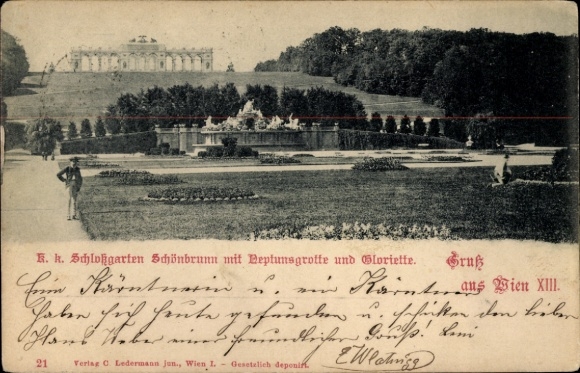 K. k. Schloßgarten Schönbrunn mit Neptunsgrotte und Gloriette.
Gruß
aus Wien XIII.
Ein Kärntnerin u. ein Kärntner
haben sich heute gefunden u. schicken den lieben
Hans Ueber einer freundlichen Gruß!
21 Verlag C. Ledermann jun., Wien I. – Gesetzlich deponirt.